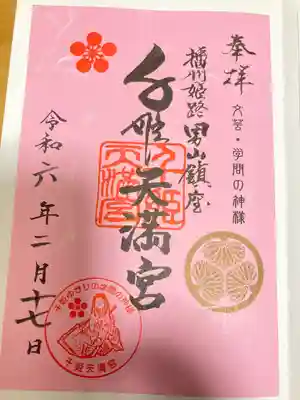 奉拝
文芸・学問の神様
播州姫路男山鎮座
千姫天満宮
千姫天満宮
令和六年二月十七日
千姫ゆかりの学問の神様
千姫天満宮